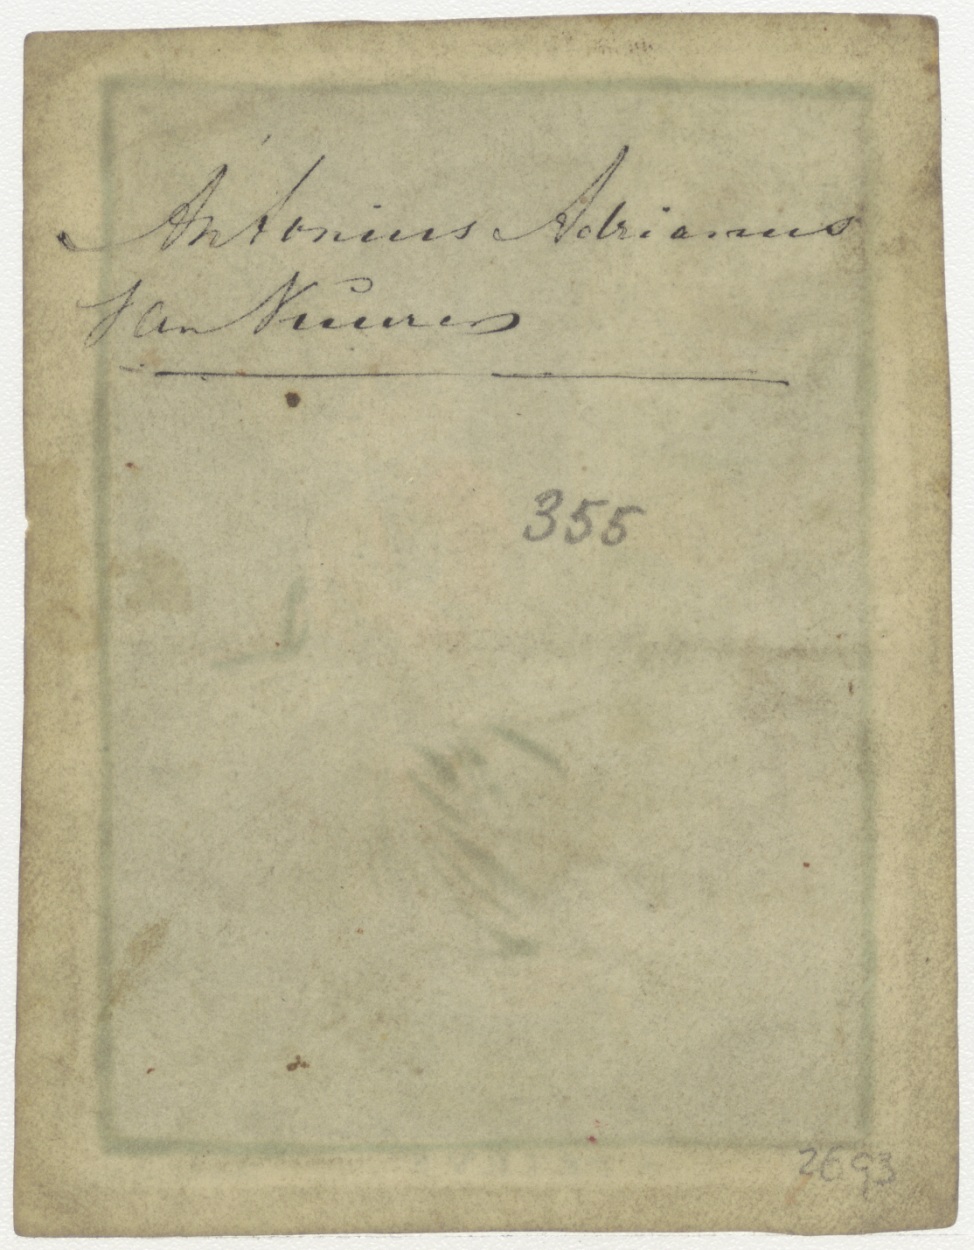 Antonius Adrianus
Van
355
2693